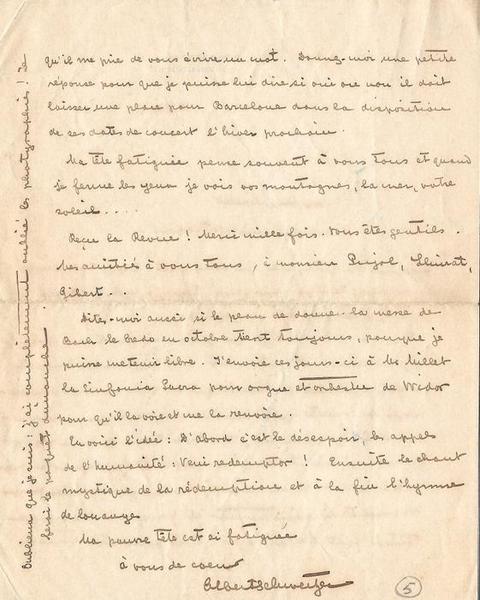 qu'il me prie de vous écrire un mot. Donnez-moi une petite
réponse pour que je puisse lui dire si oui ou non il doit
laisser une place pour Barcelone dans la disposition
de ses dates de concert l'hiver prochain.
Ma tête fatiguée pense souvent à vous tous et quand
je ferme les yeux je vois vos montagnes, la mer, votre
soleil....
Reçu la Revue! Merci mille fois. Vous êtes gentils.
Mes amitiés à vous tous, à monsieur Pujol, Llinirat,
Gibert..
Dites-moi aussi si le plan de donner la messe de
Bach le Credo en octobre tient toujours, pourque je
puisse me tenir libre. J'envoie ces jours-ci à Mr Millet
la Sinfonia Sacra pour orgue et orchestre de Widor
pour qu'il la voie et me la renvoie.
En voici l'idée: D'abord c'est le désespoir, les appels
de l'humanité: Veni redemptor! Ensuite le chant
mystique de la rédemption et à la fin l'hymne
de louange.
Ma pauvre tête est si fatiguée
à vous de coeur
Albert Schweitzer
5
Oublieux que je suis: j'ai complètement oublié les photographies! Je
ferai le paquet dimanche.